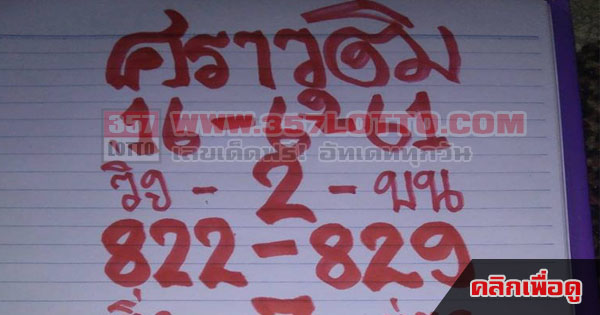 ศราวุฒิม
16-8-61
357 LOTTO
WWW.357LOTTO.COM
เลขเด็ดปร! อัทเดททุกวัน
วิ่ง - 2 - บน
822-829
คลิกเพื่อดู